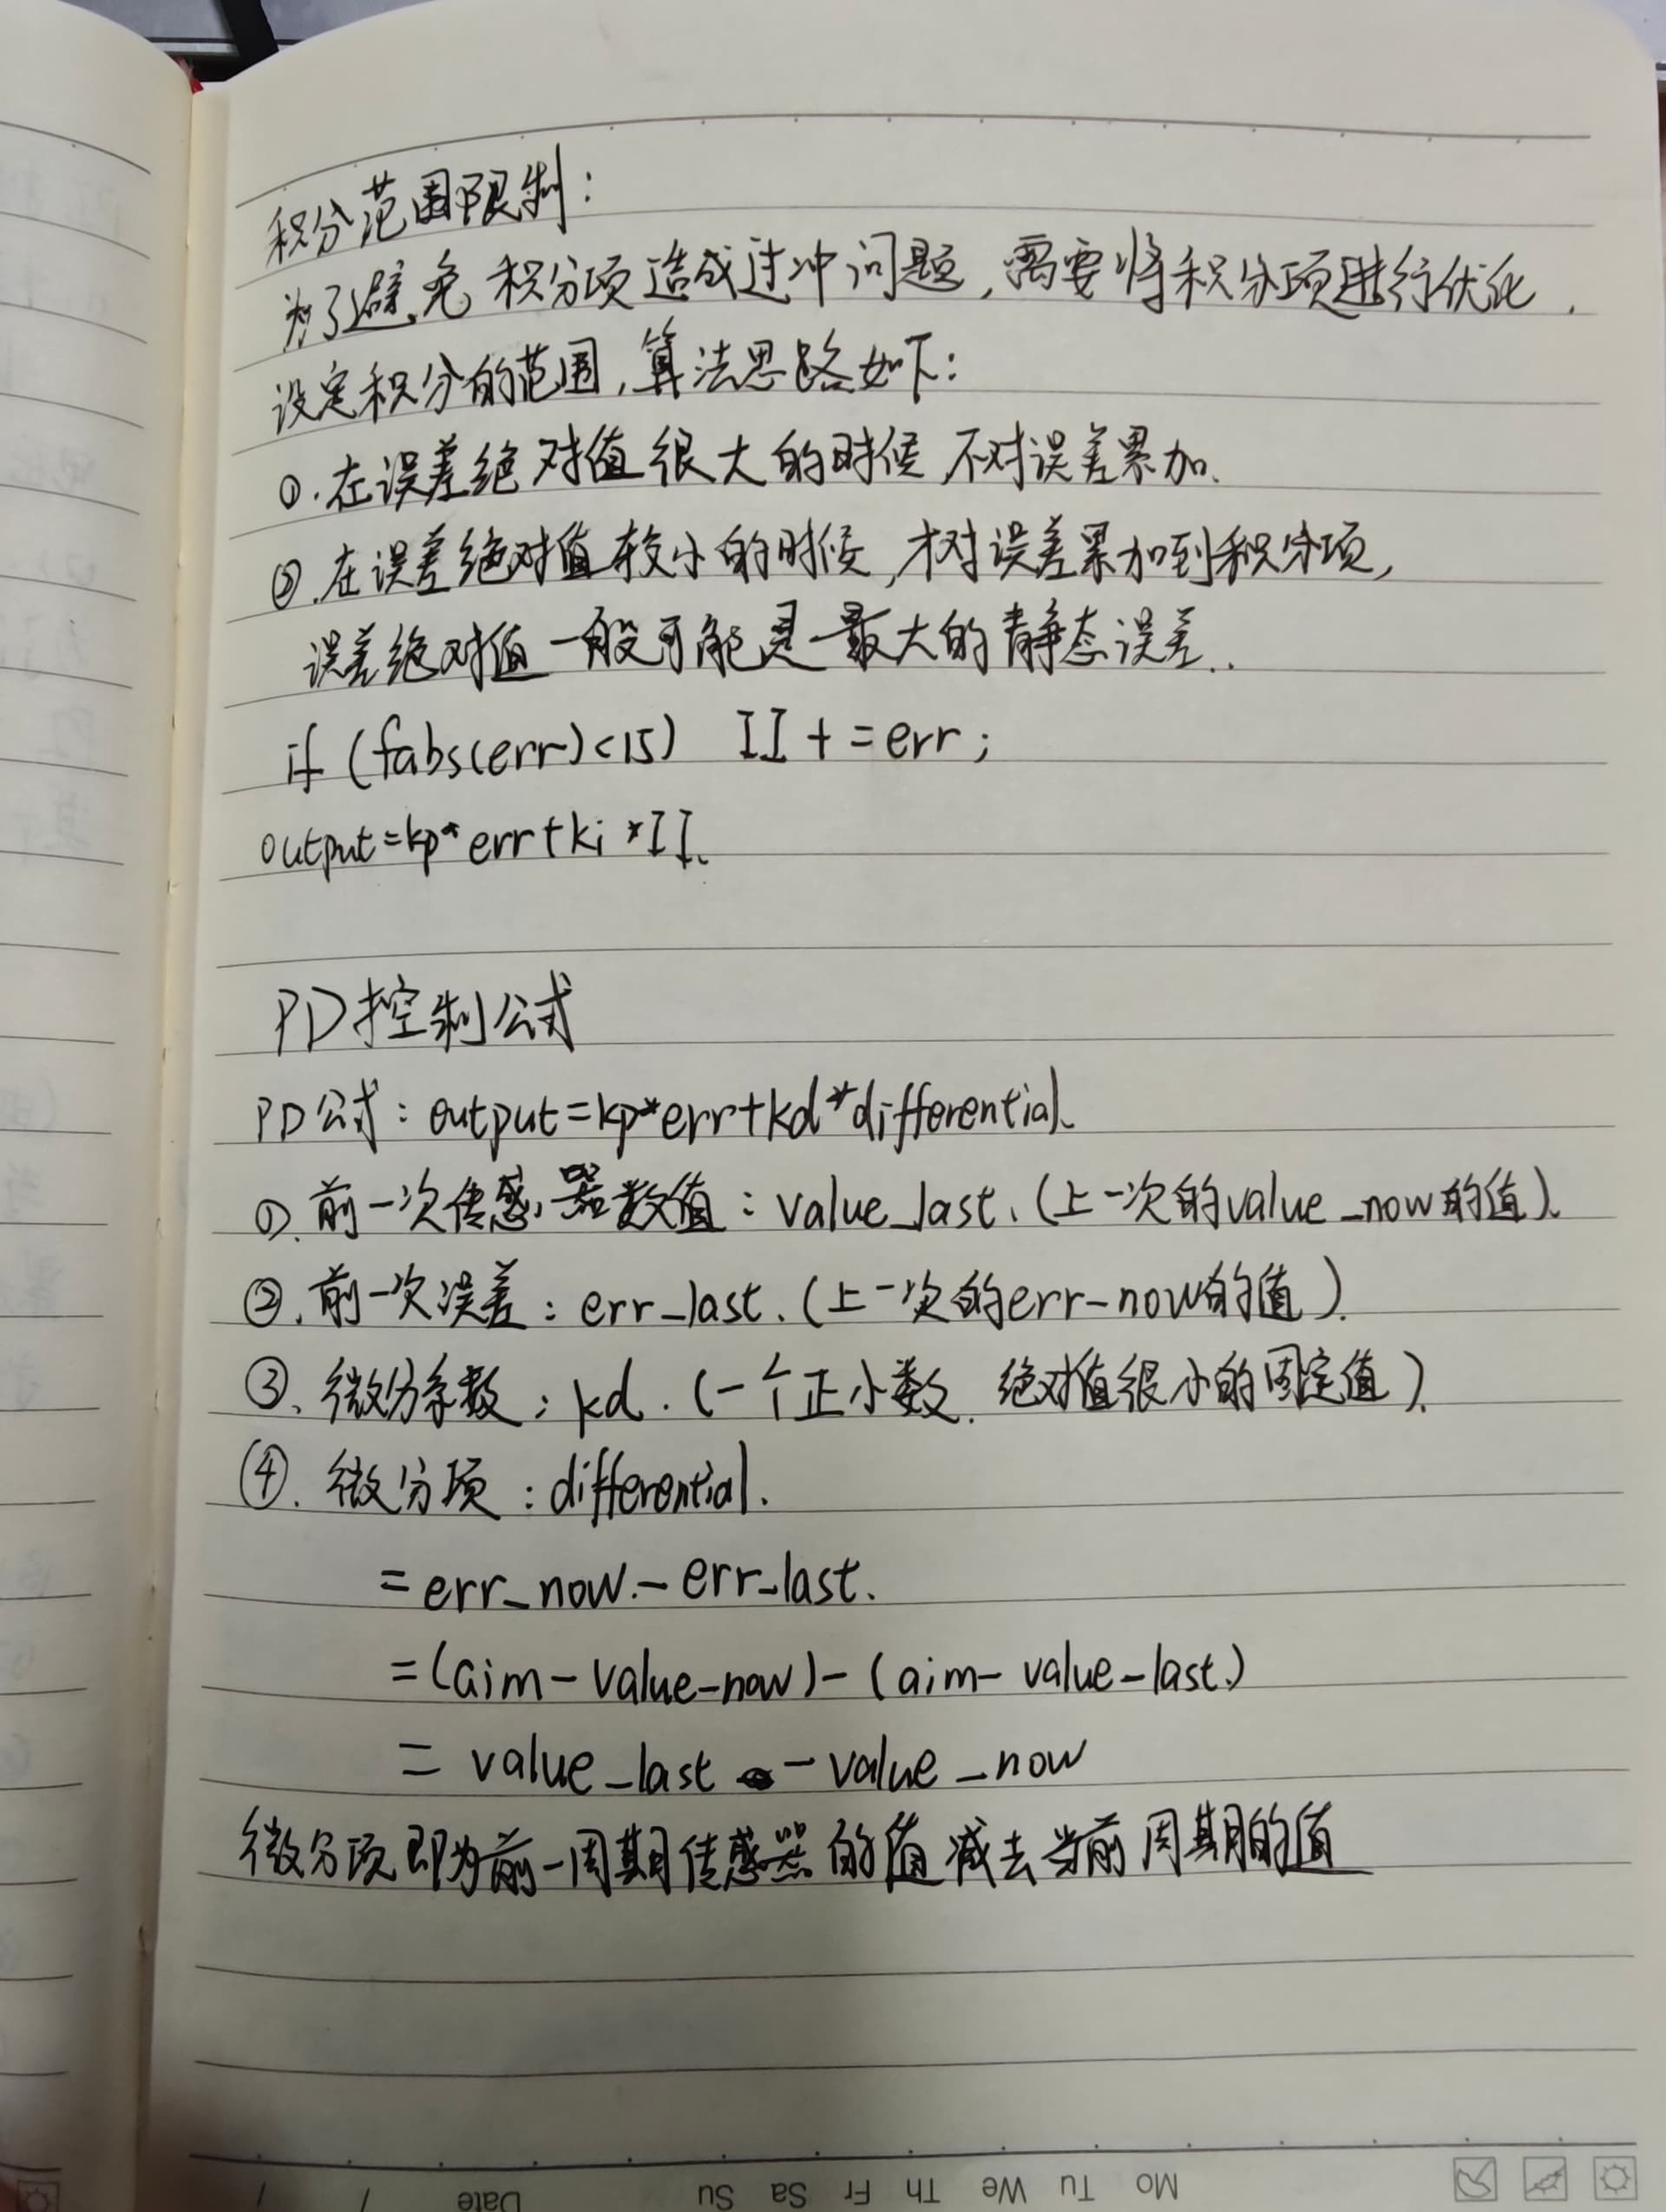 积分范围限制：
为了避免积分项造成过冲问题，需要将积分项进行优化．
设定积分的范围，算法思路如下：
①.在误差绝对值很大的时候，不对误差累加、
②.在误差绝对值较小的时候，才对误差累加到积分项，
误差绝对值一般可能是最大的静态误差..
if (fabs(err)<15)  II + = err ;
output=kp* err+ki *II、
PD控制公式
PD公式：output=kp*err+kd*differential、
①.前一次传感器数值：value_last、(上一次的value_now的值)、
②.前一次误差：err_last.(上一次的err-now的值).
③、微分系数：kd.(一个正小数、绝对值很小的固定值)、
④.微分项：differential.
=err_now.-err-last.
=(aim-value-now)-(aim-value-last.)
= value_last - value_now
微分项即为前一周期传感器的值减去当前周期的值
Date / / Su Sa Fr Th We Tu Mo